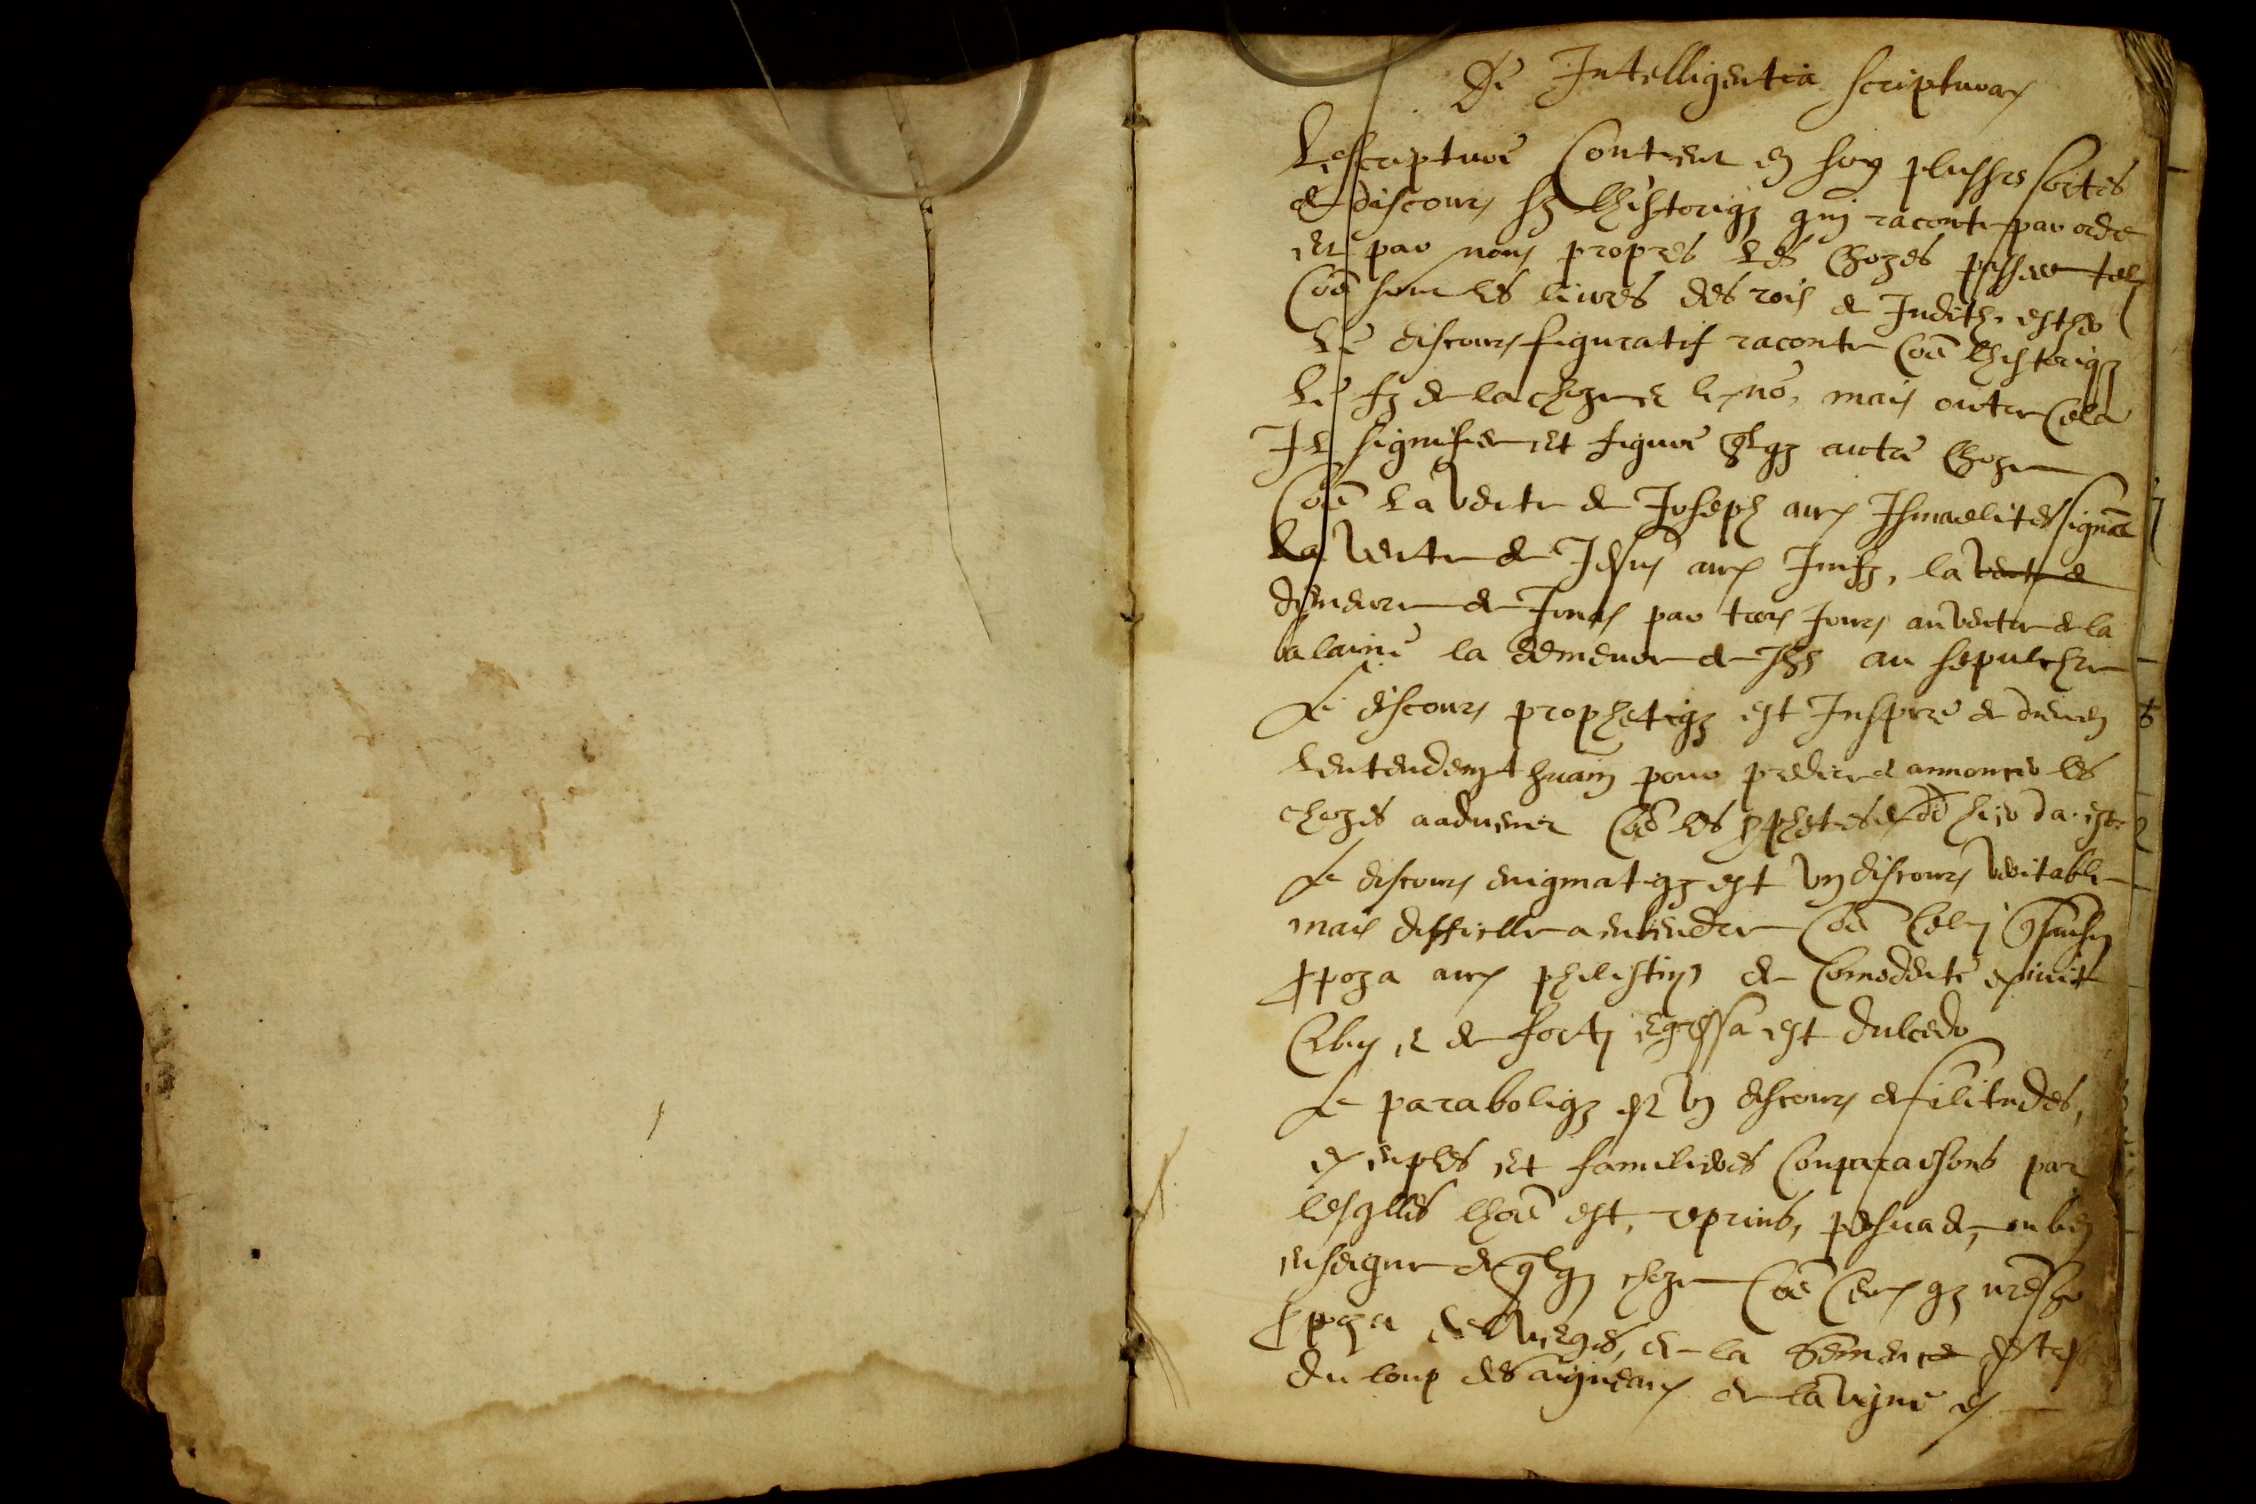 De Intelligentia scripturar
Lescripture Contient en soy plussrs sortes
de discours sz Lhistoriqz qui raconte par ordre
et par noms propres Les Chozes passees telz
Coē sont les liures des rois de Judith. esther
Le discours figuratif raconte Coē Lhistoriqz
Le sz de la choze et le nō, mais outre Cela
Il signifie et figure qlqz autre Choze
Coē La Vente de Joseph aux Ismaelites signē
La Vente de Jesus aux Juifz, la Vente de
demeure de Jonas par trois Jours au Ventre de la
balaine la demeure de Jhs au sepulchre
Le discours prophetiqz est Inspire de dieu en
Lentendemt huain pour predire et annoncer les
chozes aaduenir Coē les pphetes
Le discours enigmatiqz est Vn discours Veritable
mais difficille a entendre Coē Celuy q samson
ppoza aux philistins de Comedente exiuit
Cibus et de forti egressa est dulcedo
Le paraboliqz est Vn discours de silitudes,
exenples et familieres Conparaisons par
lesqlles lhoē est, reprins, persuade, ou bien
enseigne de qlqz choze Coē Ceux qz nre sr
ppoza des Vierges, de la Semence
du loup des aigneaux de la Vigne &